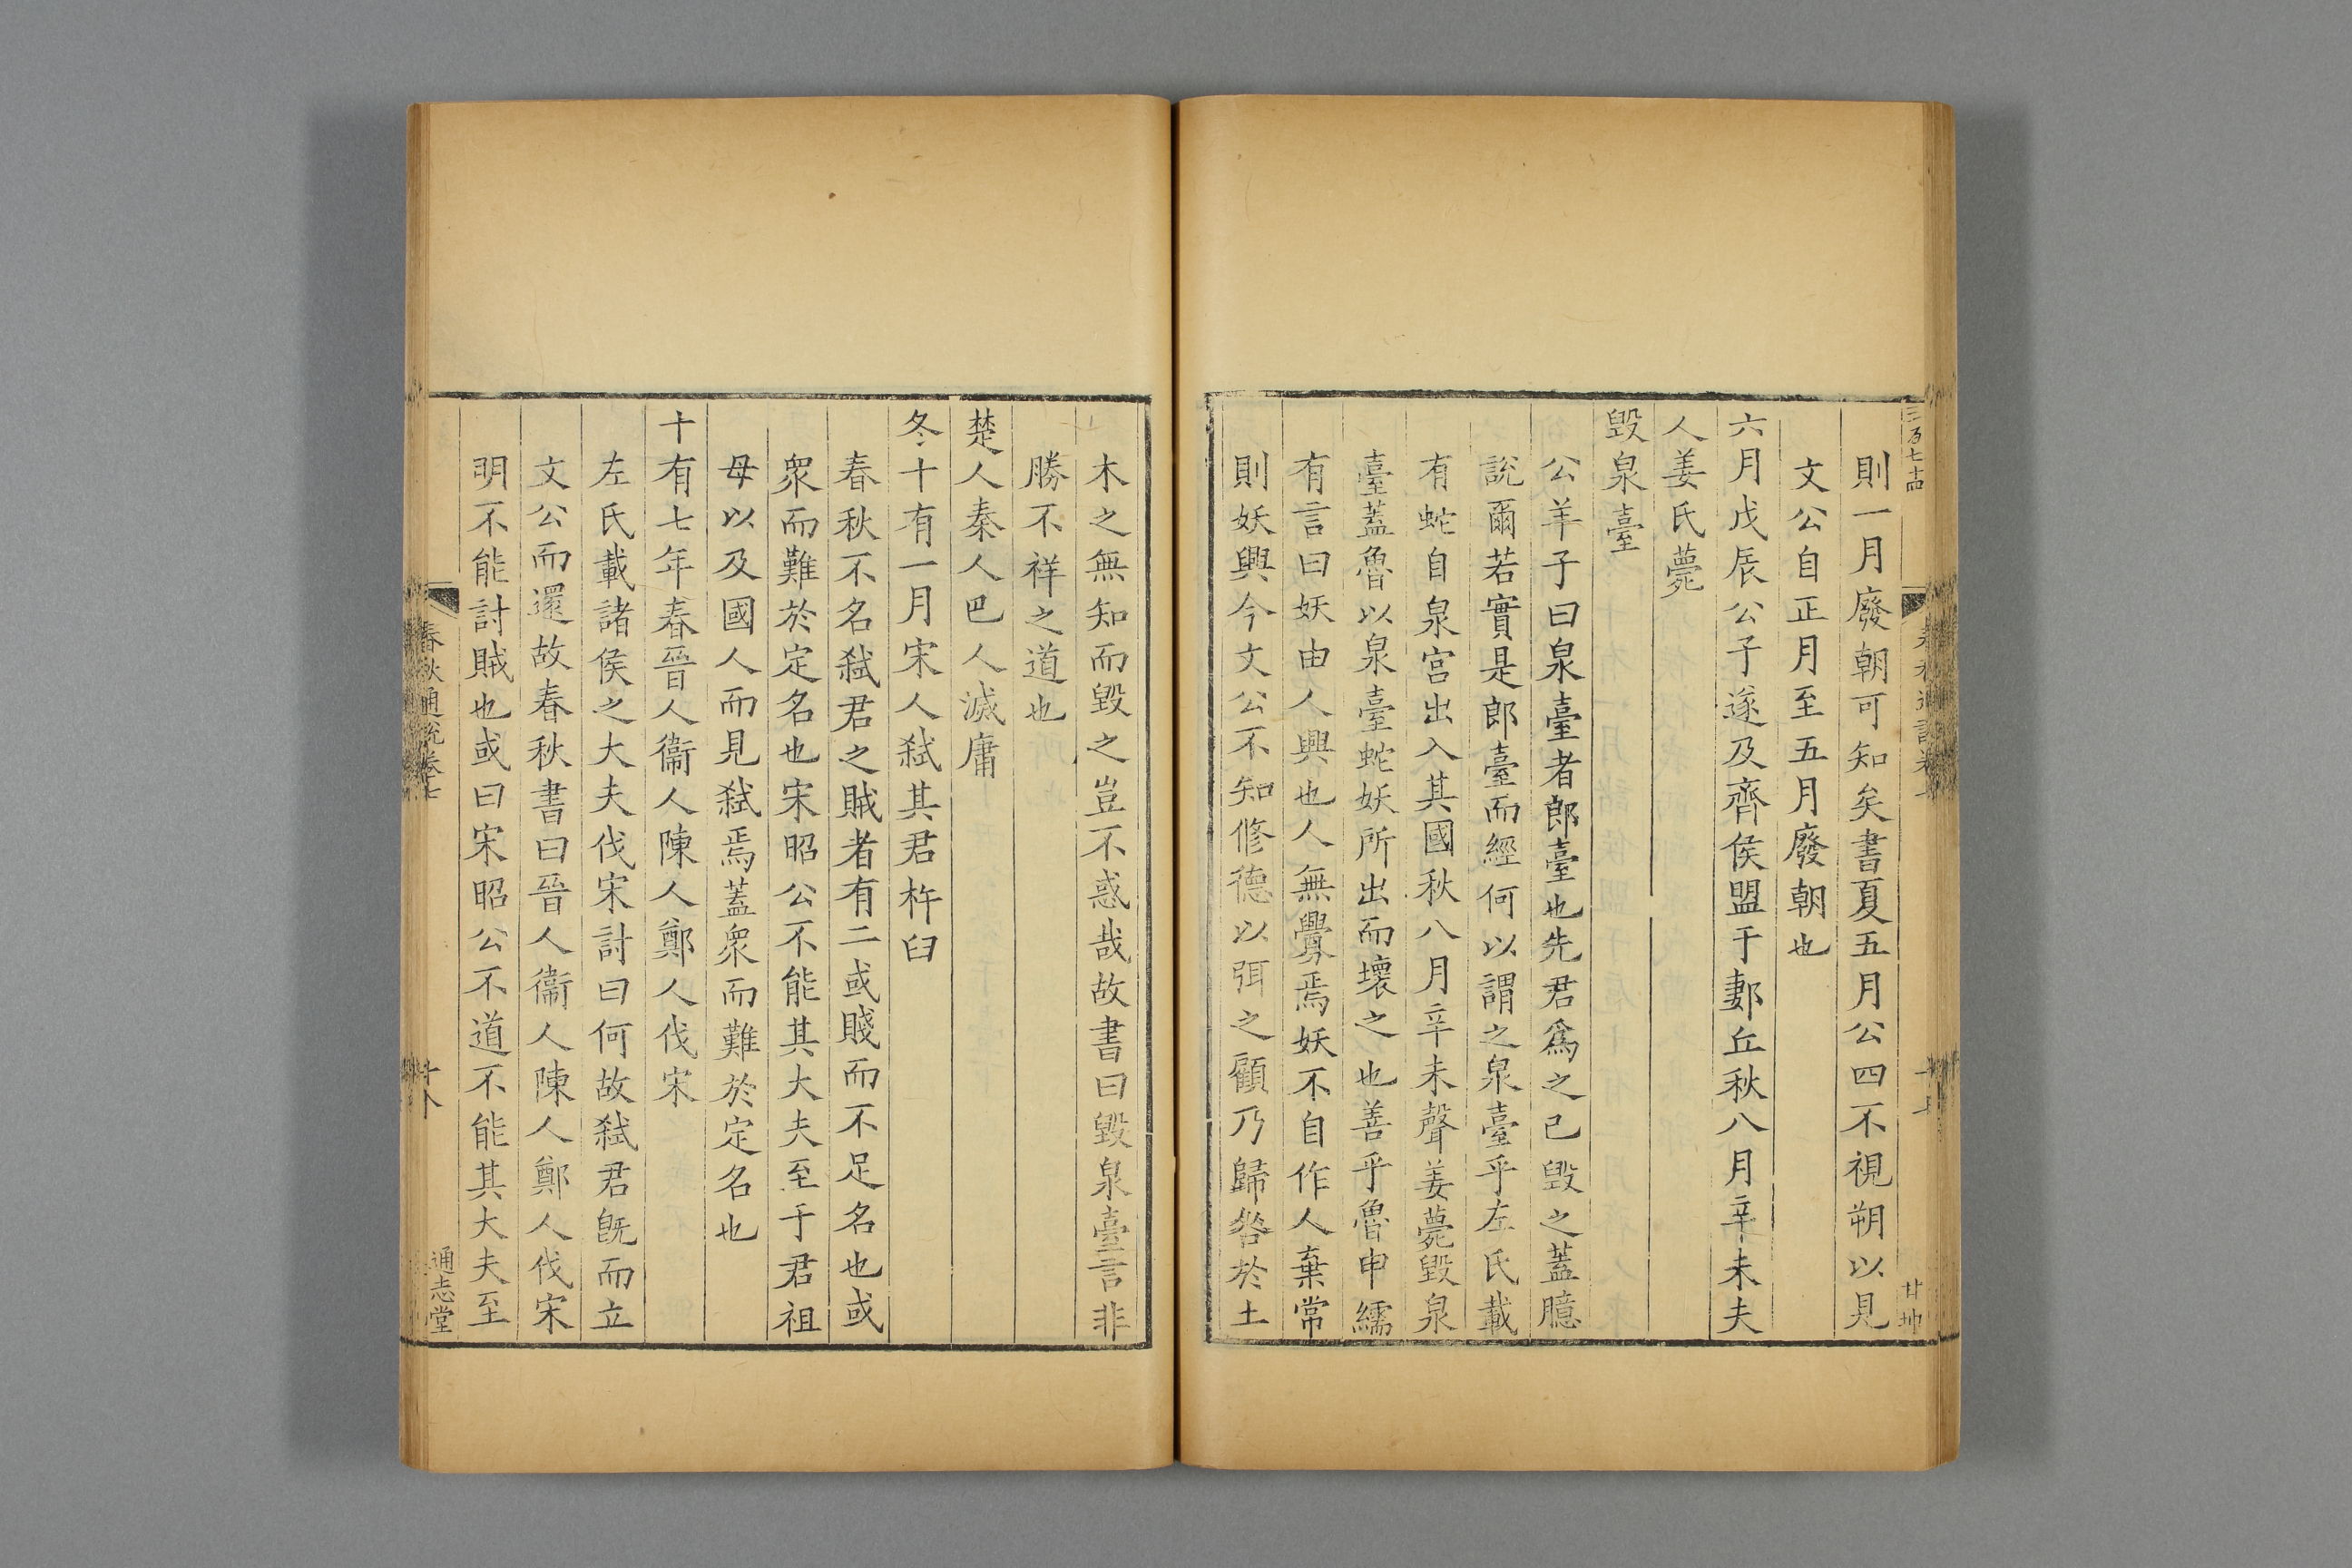 則一月廢朝可知矣書夏五月公四不視朔以見
文公自正月至五月廢朝也
六月戊辰公子遂及齊侯盟于郪丘秋八月辛未夫
人姜氏薨
毀泉臺
公羊子曰泉臺者郎臺也先君爲之已毀之蓋臆
說爾若實是郎臺而經何以謂之泉臺乎左氏載
有蛇自泉宫出入其國秋八月辛未聲姜薨毀泉
臺蓋魯以泉臺蛇妖所出而壞之也善乎魯申繻
有言曰妖由人興也人無釁焉妖不自作人棄常
則妖興今文公不知修德以弭之顧乃歸咎於土
木之無知而毀之豈不惑哉故書曰毀泉臺言非
勝不祥之道也
楚人秦人巴人滅庸
冬十有一月宋人弑其君杵臼
春秋不名弑君之賊者有二或賤而不足名也或
衆而難於定名也宋昭公不能其大夫至于君祖
母以及國人而見弑焉蓋衆而難於定名也
十有七年春晉人衞人陳人鄭人伐宋
左氏載諸侯之大夫伐宋討曰何故弑君旣而立
文公而還故春秋書曰晉人衞人陳人鄭人伐宋
明不能討賊也或曰宋昭公不道不能其大夫至
春秋通說卷七
通志堂